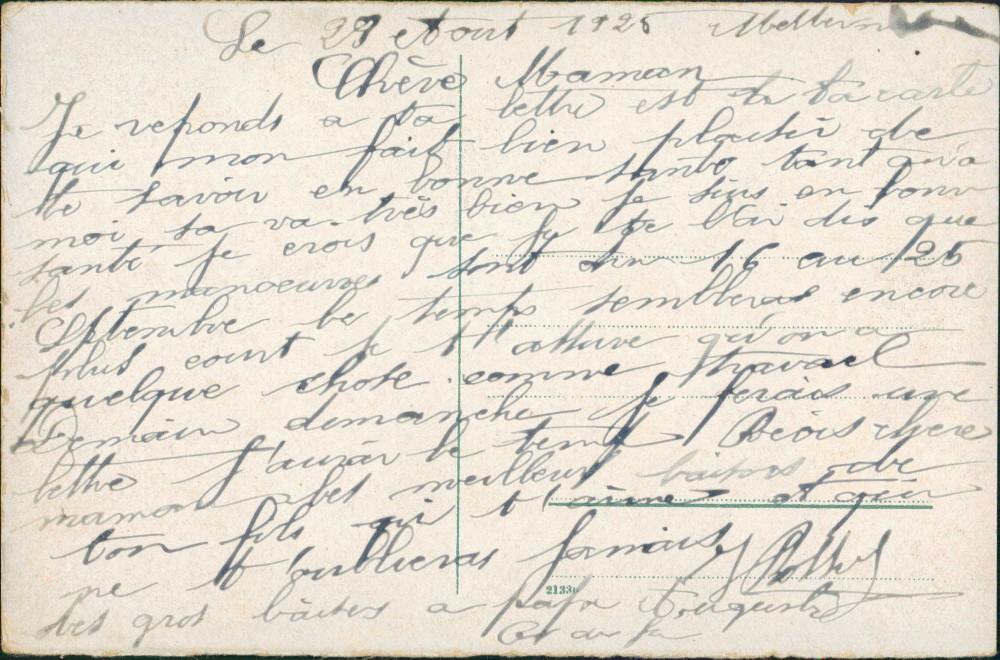 Le 29 Aout 1925
Chère Maman
Je reponds a ta lettre et ta carte
qui mon fait bien plaisir de
te savoir en bonne santé tant qu'a
moi sa va très bien je suis en bonne
santé je crois que je te l'ai dis que
les manoeuvres sont du 16 au 25
Septembre le temps sembleras encore
plus court je t'assure qu'on a
quelque chose comme travael
Demain dimanche je ferais une
lettre j'aurai le temps Recois chere
maman les meilleurs baisers de
ton fils qui t'aime et qui
ne t'oublieras jamais
des gros baises a papa
21336